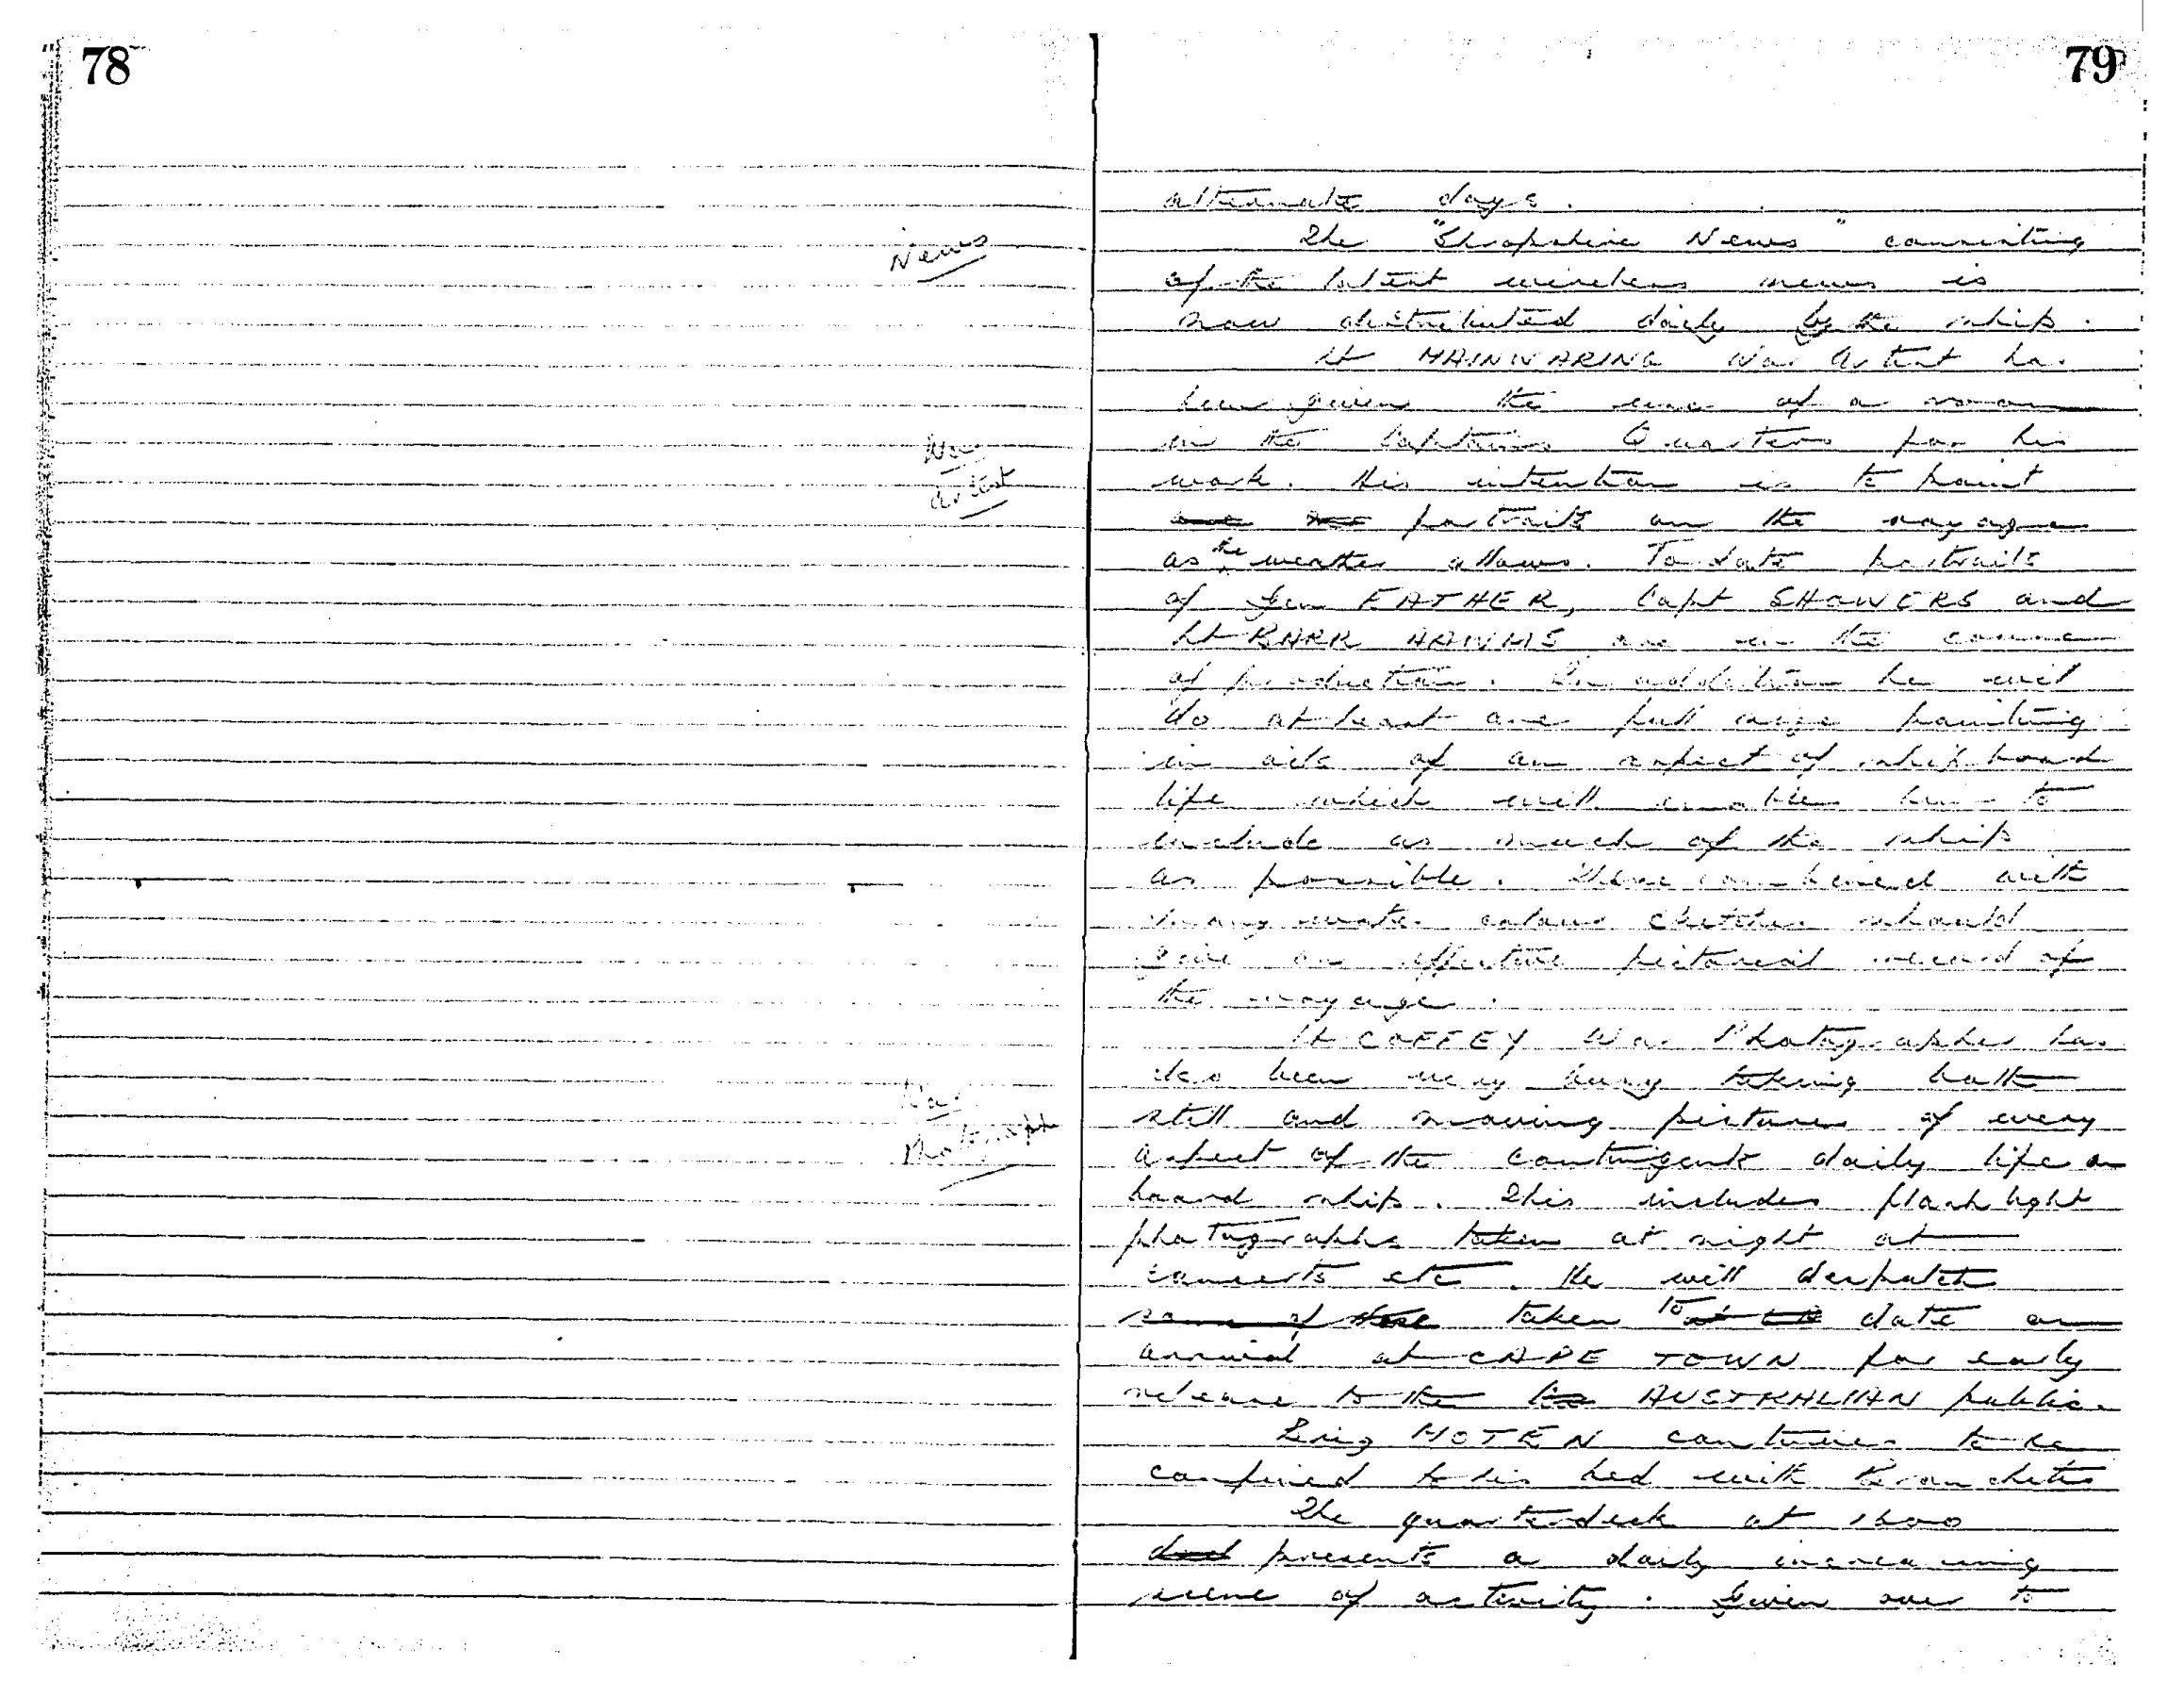 78
News
War
Artist
War
Photograph
79
alternate days.
The "Shropshire News" consisting
of the latest wireless news is
now distributed daily by the ship.
Lt MAINWARING War Artist has
been given the use of a room
in the Captains Quarters for his
work. His intention is to paint
portraits on the voyage
as the weather allows. To date portraits
of Gen EATHER, Capt SHOWERS and
Lt are in the course
of production. In addition he will
do at least one full size painting
in oils of an aspect of shipboard
life which will enable him to
include as much of the ship
as possible. These combined with
many water colour sketches should
give an effective pictorial record of
the voyage.
Lt COFFEY War Photographer has
also been very busy taking both
still and moving pictures of every
aspect of the contingents daily life on
board ship. This includes flashlight
photographs taken at night at
concerts etc. He will despatch
some of those taken to date on
arrival at CAPE TOWN for early
release to the AUSTRALIAN public.
Brig HOTEN continues to be
confined to his bed with bronchitis
The quarterdeck at 1600
presents a daily increasing
scene of activity. Given over to